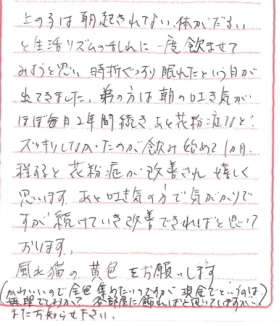 上の子は朝起きれない、体がだるい
と生活リズムのずれに一度飲ませて
みようと思い時折ぐっすり眠れたという日が
出てきました。弟の方は朝の吐き気が
ほぼ毎日2年間続きあと花粉症など?
スッキリしなかったのが飲み始めて1か月
程ると花粉症が改善され嬉しく
思います。あと吐き気の方で気がかりで
すが続けていき改善できればと思って
おります。
風水猫の黄色をお願いします
(かわいいので全色集めたいのですが現金でというのは
無理でしょうか?各部屋に飾ればと思いまして
またお知らせ下さい。